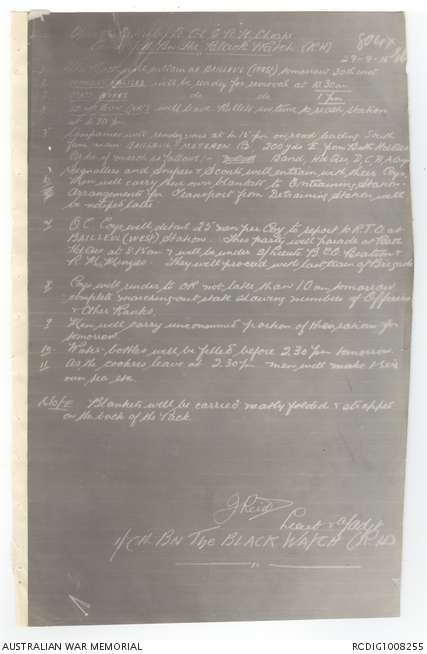 Orders by Lt Col G A McL Sceales
Comdg 4th Bn The Black Watch (R.H.)
29-9-15
Battalion will entrain at BAILLEUL (WEST) tomorrow 30th inst
will be ready for removal at 10.30am
do do do 1 pm
will leave Billets in time to reach station
at 4.30 pm
Companies will rendezvous at 4.15 pm on road leading South
from main BAILLEUL - METEREN Rd 200 yds E from Bath Billets
Order of march as follows :- Band, Hd Qrs, D, C, B, A Coys
Signallers and Snipers & Scouts will entrain with their Coys.
6 Men will carry their own blankets to Entraining Station.
Arrangements for Transport from Detraining Station will
be notified later.
7 O.C. Coys will detail 25 men per Coy to report to R.T.O. at
BAILLEUL (WEST) Station. This party will parade at
at 8.15am & will be under 2/Lieuts B.C. &
R. H. Menzies. They will proceed with last train of Brigade
8 Coys will render to OR not later than 10am tomorrow
complete marching out state showing numbers of Officers
& Other Ranks.
9 Men will carry unconsumed portion of their rations for
tomorrow.
10 Water-bottles will be filled before 2.30 pm tomorrow
11 As the cookers leave at 2.30 pm men will make their
own tea etc.
Note Blankets will be carried neatly folded & strapped
on the back of the Pack.
J Reid
Lieut & a/Adjt
1/4th BN THE BLACK WATCH (R.H.)
AUSTRALIAN WAR MEMORIAL
RCDIG1008255